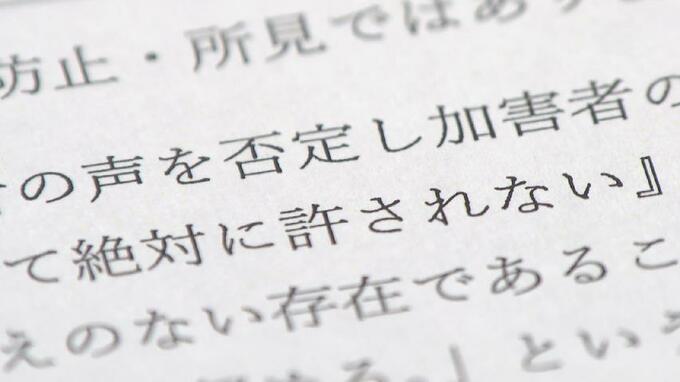 防止・所見ではあ
の声を否定し加害者の
て絶対に許されない』
えのない存在であるこ
る。」という